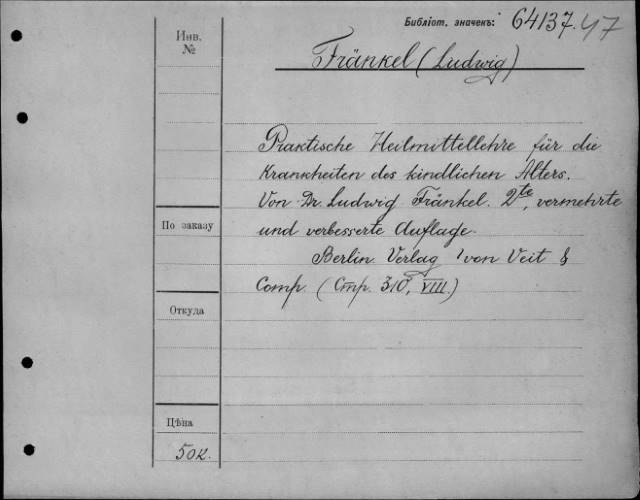 Библіот. значекъ: 64137.47
Инв.
№
Fränkel (Ludwig)
Praktische Heilmittellehre für die
Krankheiten des kindlichen Alters.
Von Dr. Ludwig Fränkel. 2te, vermehrte
По заказу
und verbesserte Auflage.
Berlin. Verlag von Veit &
Comp. (Стр. 310, VIII.)
Откуда
Цѣна
50к.